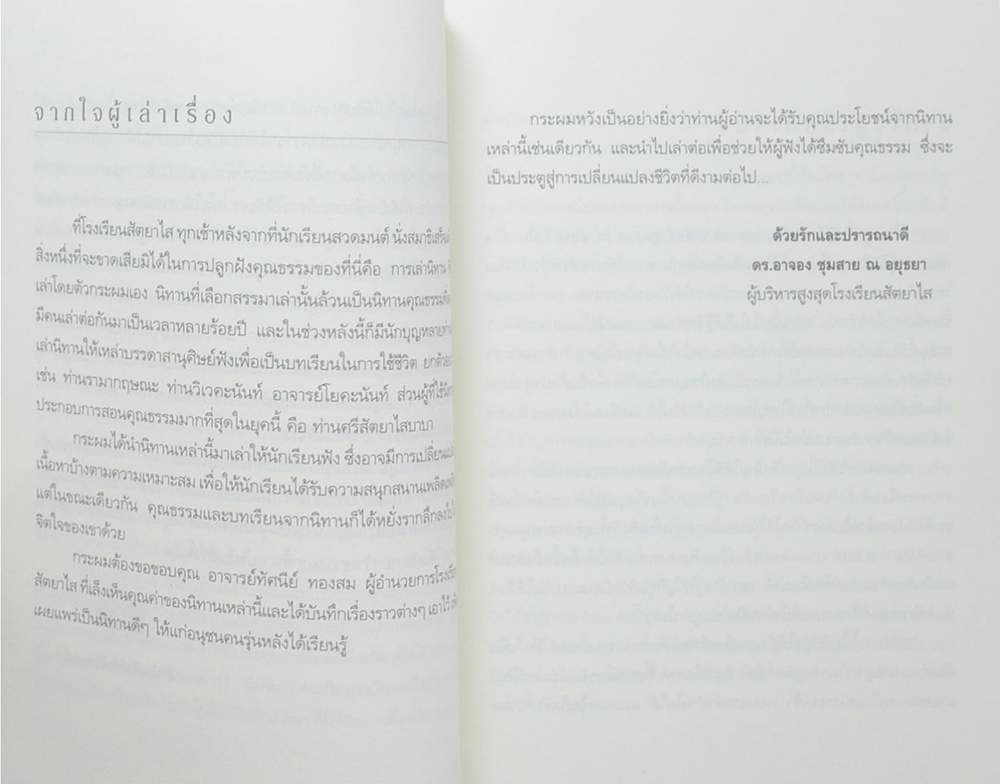 จากใจผู้เล่าเรื่อง
ที่โรงเรียนสัตยาไส ทุกเช้าหลังจากที่นักเรียนสวดมนต์ นั่งสมาธิเสร็จแล้ว
สิ่งหนึ่งที่จะขาดเสียมิได้ในการปลูกฝังคุณธรรมของที่นี่คือ การเล่านิทาน
เล่าโดยตัวกระผมเอง นิทานที่เลือกสรรมาเล่านั้นล้วนเป็นนิทานคุณธรรม
มีคนเล่าต่อกันมาเป็นเวลาหลายร้อยปี และในช่วงหลังนี้ก็มีนักบุญหลาย
เล่านิทานให้เหล่าบรรดาสานุศิษย์ฟังเพื่อเป็นบทเรียนในการใช้ชีวิต
เช่น ท่านรามากฤษณะ ท่านวิเวคะนันท์ อาจารย์โยคะนันท์ ส่วนผู้ที่ใช้
ประกอบการสอนคุณธรรมมากที่สุดในยุคนี้ คือ ท่านศรีสัตยาไสบาบา
กระผมได้นำนิทานเหล่านี้มาเล่าให้นักเรียนฟัง ซึ่งอาจมีการเปลี่ยน
เนื้อหาบ้างตามความเหมาะสม เพื่อให้นักเรียนได้รับความสนุกสนาน
แต่ในขณะเดียวกัน คุณธรรมและบทเรียนจากนิทานก็ได้หยั่งรากลึกลง
จิตใจของเขาด้วย
กระผมต้องขอขอบคุณ อาจารย์ทัศนีย์ ทองสม ผู้อำนวยการ
สัตยาไส ที่เล็งเห็นคุณค่าของนิทานเหล่านี้และได้บันทึกเรื่องราวต่างๆ เอาไว้
เผยแพร่เป็นนิทานดีๆ ให้แก่อนุชนคนรุ่นหลังได้เรียนรู้
กระผมหวังเป็นอย่างยิ่งว่าท่านผู้อ่านจะได้รับคุณประโยชน์จากนิทาน
เหล่านี้เช่นเดียวกัน และนำไปเล่าต่อเพื่อช่วยให้ผู้ฟังได้ซึมซับคุณธรรม ซึ่งจะ
เป็นประตูสู่การเปลี่ยนแปลงชีวิตที่ดีงามต่อไป...
ด้วยรักและปรารถนาดี
ดร.อาจอง ชุมสาย ณ อยุธยา
ผู้บริหารสูงสุดโรงเรียนสัตยาไส